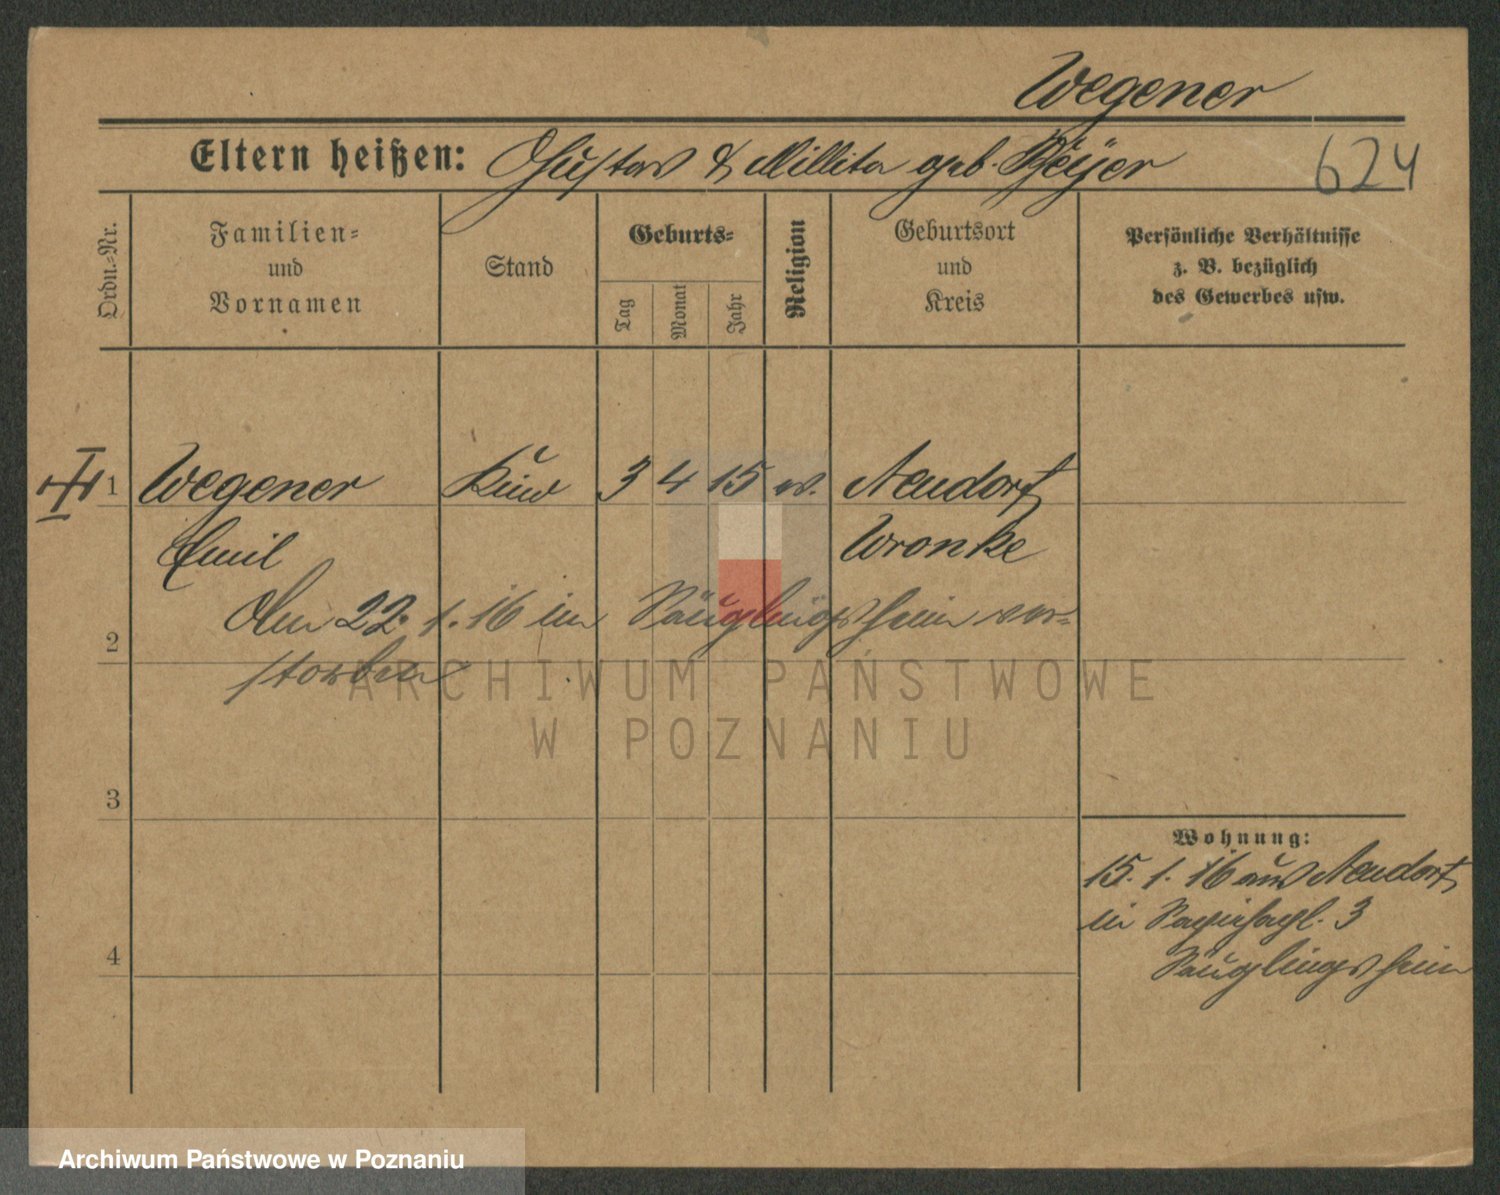 Wegener
Eltern heißen: Gustav & Millita geb. Beyer
624
Ordn.-Nr.
Familien=
und
Vornamen
Stand
Geburts=
Tag
Monat
Jahr
Religion
Geburtsort
und
Kreis
Persönliche Verhältnisse
z. B. bezüglich
des Gewerbes usw.
1 Wegener Kind 3 4 15 ev. Neudorf
Emil Wronke
Am 22. 1. 16 im Säuglingsheim ver=
2
storben
ARCHIWUM PAŃSTWOWE
W POZNANIU
3
Wohnung:
15. 1. 16 aus Neudorf
in 3
Säuglingsheim
4
Archiwum Państwowe w Poznaniu